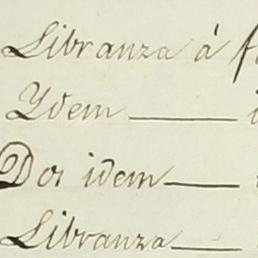 Libranza á
Ydem
Dos idem
Libranza